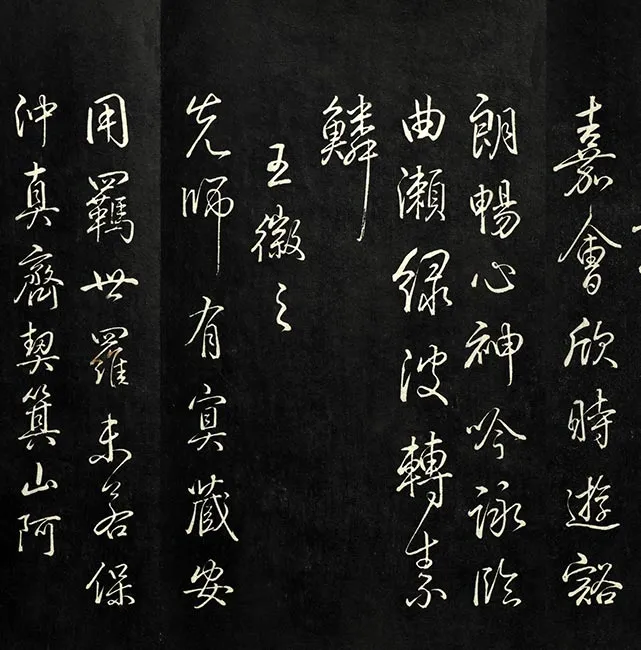 嘉會欣時遊豁
朗暢心神吟詠臨
曲瀨綠波轉素
鱗
王徽之
先師有冥藏安
用羈世羅未若保
沖真齊契箕山阿